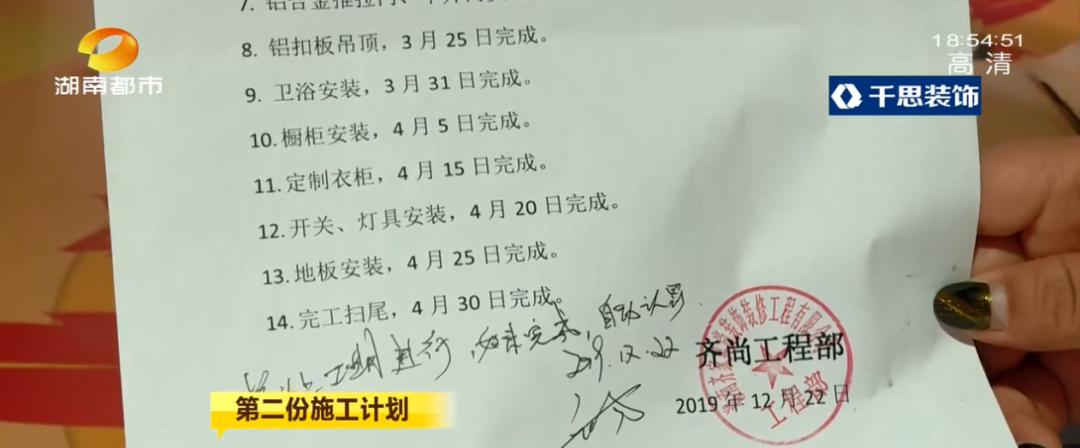 7. 铝合金推拉门、
8. 铝扣板吊顶，3 月 25 日完成。
9. 卫浴安装，3 月 31 日完成。
10. 橱柜安装，4 月 5 日完成。
11. 定制衣柜，4 月 15 日完成。
12. 开关、灯具安装，4 月 20 日完成。
13. 地板安装，4 月 25 日完成。
14. 完工扫尾，4 月 30 日完成。
工期进行，如未完成，自动认罚
2019.12.22
齐尚工程部
2019 年 12 月 22 日
装饰装修工程有限公
工程部
湖南都市
18:54:51
高清
千思装饰
第二份施工计划